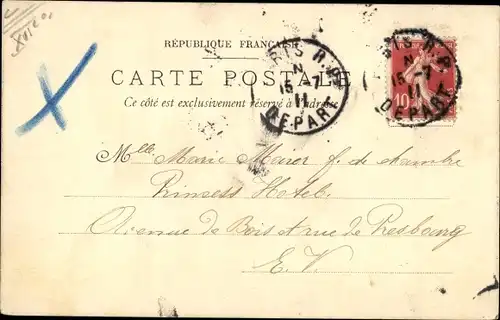 XVIe
RÉPUBLIQUE FRANÇAISE
CARTE POSTALE
Ce côté est exclusivement réservé à l'adresse
PARIS R.P.
N
15-7
11
DEPART
PARIS R.P.
N
15-7
11
DEPART
10
Mlle Marie Marer f. de chambre
Princess Hotel
Avenue de Bois et rue de Presbourg
E.V.